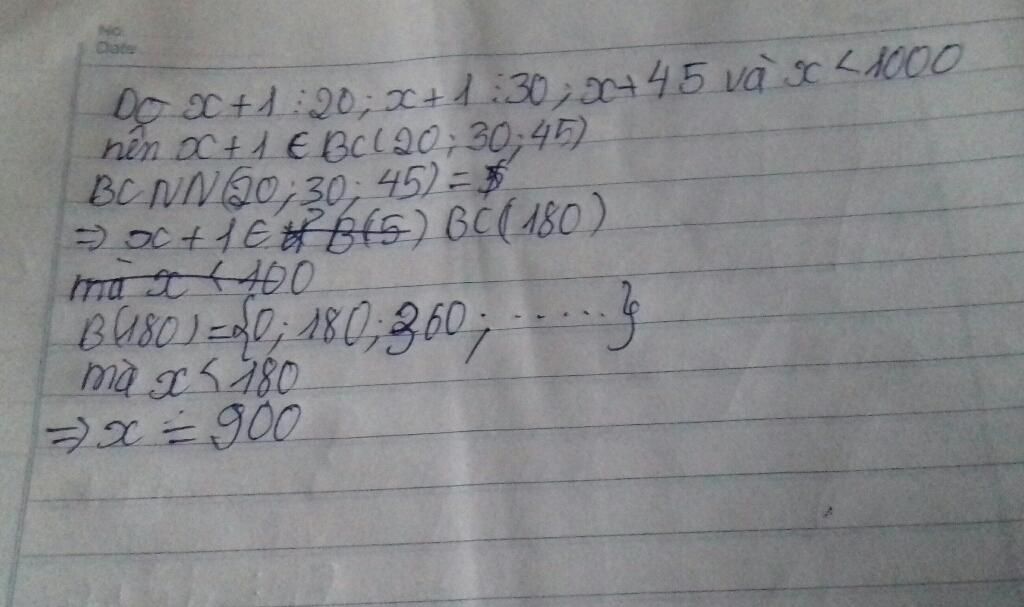 No.
Date
Do x+1 ⋮ 20; x+1 ⋮ 30; x+45 và x < 1000
nên x+1 ∈ BC(20; 30; 45)
BCNN(20; 30; 45) =
⇒ x+1 ∈ B(5) BC(180)
mà x < 100
B(180) = {0; 180; 360; ......}
mà x < 180
⇒ x = 900